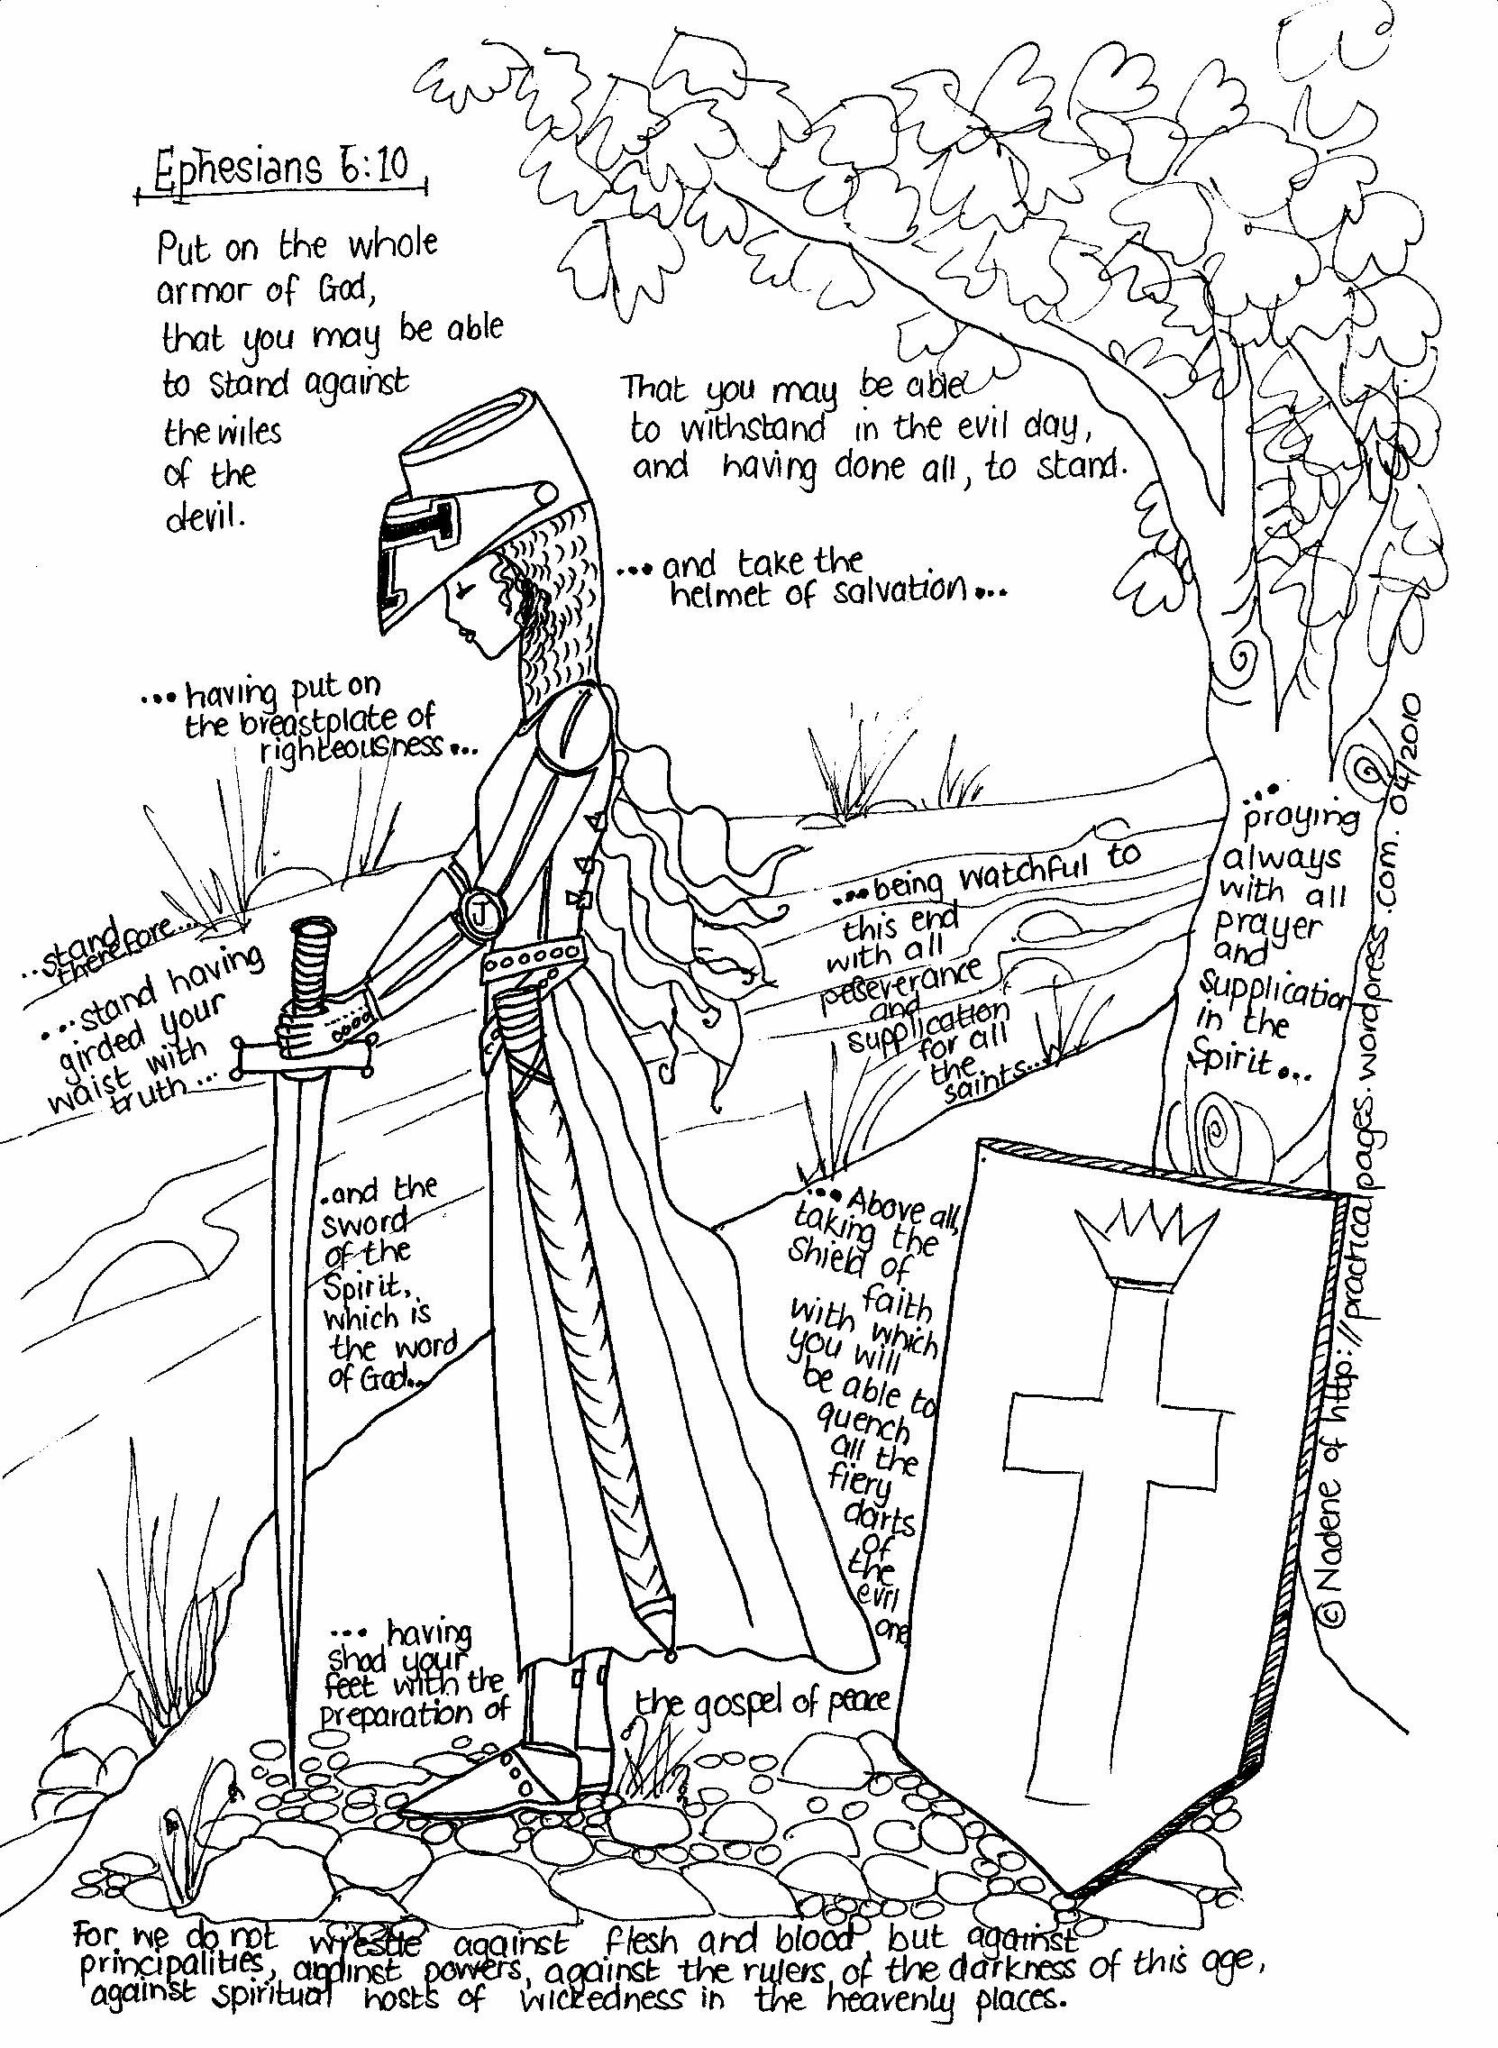 Ephesians 6:10
Put on the whole
armor of God,
that you may be able
to stand against
the wiles
of the
devil.
That you may be able
to withstand in the evil day,
and having done all, to stand.
... and take the
helmet of salvation...
... having put on
the breastplate of
righteousness...
...stand
therefore...
...stand having
girded your
waist with
truth...
...being watchful to
this end
with all
perseverance
and
supplication
for all
the
saints...
...
praying
always
with all
prayer
and
supplication
in the
Spirit...
J
.and the
sword
of the
Spirit,
which is
the word
of God...
... Above all,
taking the
shield of
faith
with which
you will
be able to
quench
all the
fiery
darts
of
the
evil
one
... having
shod your
feet with the
preparation of
the gospel of peace
For we do not wrestle against flesh and blood, but against
principalities, against powers, against the rulers of the darkness of this age,
against spiritual hosts of wickedness in the heavenly places.
© Nadene of http://practicalpages.wordpress.com. 04/2010